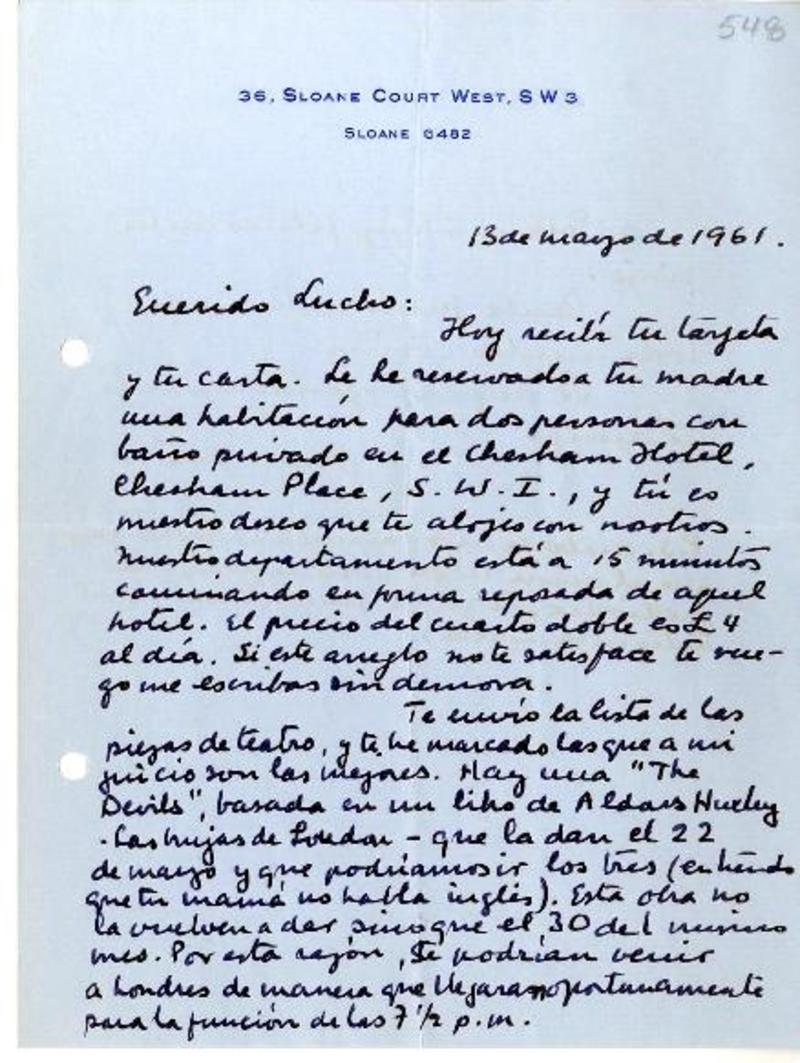 548
36, SLOANE COURT WEST, S W 3
SLOANE 6482
13 de mayo de 1961.
Querido Lucho:
Hoy recibí tu tarjeta
y tu carta. Le he reservado a tu madre
una habitación para dos personas con
baño privado en el Chesham Hotel,
Chesham Place, S. W. I., y tú es
nuestro deseo que te alojes con nosotros.
Nuestro departamento está a 15 minutos
caminando en forma reposada de aquel
hotel. El precio del cuarto doble es £ 4
al día. Si este arreglo no te satisface te rue-
go me escribas sin demora.
Te envío la lista de las
piezas de teatro, y te he marcado las que a mi
juicio son las mejores. Hay una "The
Devils", basada en un libro de Aldous Huxley
- Las brujas de Loudon - que la dan el 22
de mayo y que podríamos ir los tres (entiendo
que tu mamá no habla inglés). Esta obra no
la vuelven a dar sino que el 30 del mismo
mes. Por esta razón, si podrían venir
a Londres de manera que llegaran oportunamente
para la función de las 7 ½ p.m.